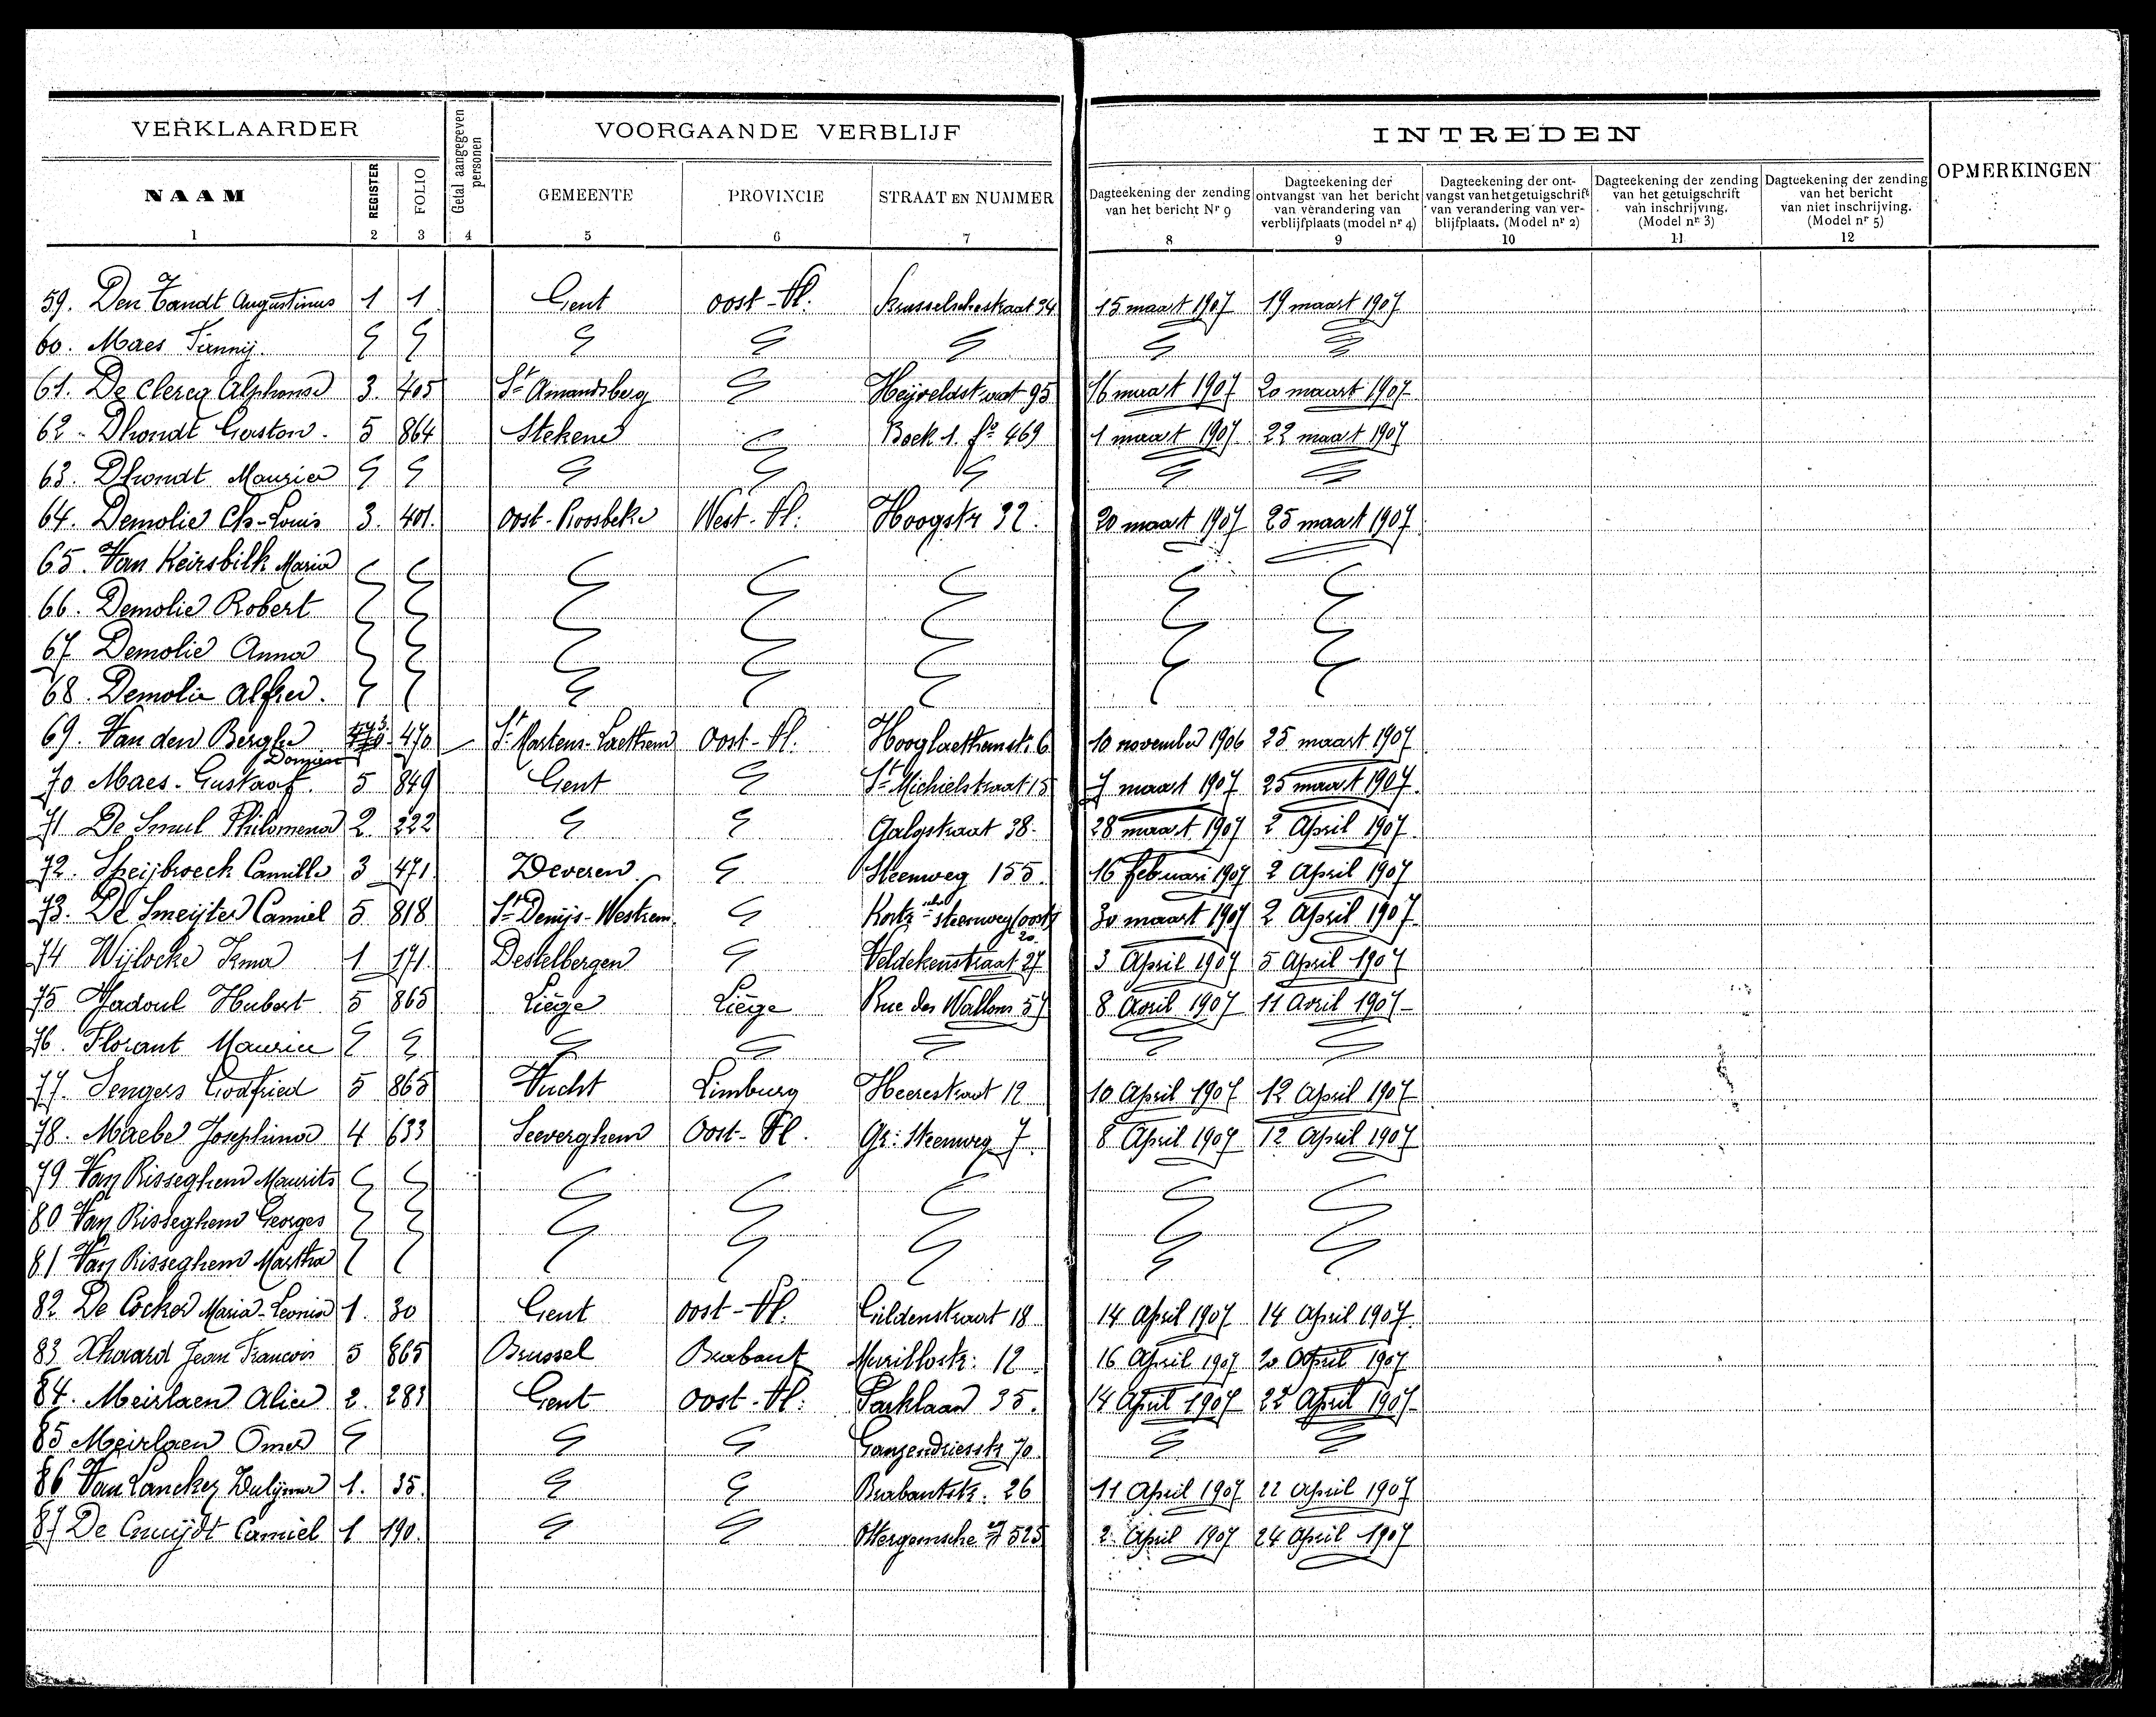 VERKLAARDER Getal aangegeven personen VOORGAANDE VERBLIJF INTREDEN OPMERKINGEN
NAAM REGISTER FOLIO GEMEENTE PROVINCIE STRAAT EN NUMMER
Dagteekening der zending van het bericht Nr 9
Dagteekening der ontvangst van het bericht van verandering van verblijfplaats (model nr 4)
Dagteekening der ontvangst van het getuigschrift van verandering van verblijfplaats. (Model nr 2)
Dagteekening der zending van het getuigschrift van inschrijving. (Model nr 3)
Dagteekening der zending van het bericht van niet inschrijving. (Model nr 5)
1 2 3 4 5 6 7 8 9 10 11 12
59. Den Tandt Augustinus 1 1 Gent Oost-Vl. Brusselschestraat 34 15 maart 1907 19 maart 1907
60. Maes Fannij.
61. De Clercq Alphonse 3. 405 St Amandsberg Heijveldstraat 95 16 maart 1907 20 maart 1907
62. Dhondt Gaston. 5 864 Stekene Boek 1. fo 469 1 maart 1907 22 maart 1907
63. Dhondt Maurice
64. Demolie Ch-Louis 3. 401. Oost-Roosbeke West-Vl. Hoogstr 32. 20 maart 1907 25 maart 1907
65. Van Keirsbilk Maria
66. Demolie Robert
67 Demolie Anna
68. Demolie Alfred.
69. Van den Berghe 3 470 St Martens-Laethem Oost-Vl. Hooglaethemstr. 6 10 november 1906 25 maart 1907
70 Maes-Gustaaf. 5 849 Gent St Michielstraat 15 7 maart 1907 25 maart 1907.
71 De Smul Philomena 2. 222 Galgstraat 38. 28 maart 1907 2 April 1907
72. Speijbroeck Camille 3 471 Deveren Steenweg 155. 16 februari 1907 2 April 1907
73. De Smeijter Camiel 5 818 St Denijs-Westrem. Kortr sche steenweg (oost) 20. 30 maart 1907 2 April 1907
74 Wijlocke Irma 1 171. Destelbergen Veldekenstraat 27 3 April 1907 5 April 1907
75 Hadoul Hubert 5 865 Liége Liége Rue des Wallons 57 8 Avril 1907 11 Avril 1907
76. Florant Maurice
77. Sengers Godfried 5 865 Vucht Limburg Heerestraat 12 10 April 1907 12 April 1907
78. Maebe Josephina 4 633 Seeverghem Oost-Vl. Gr: Steenweg 7. 8 April 1907 12 April 1907
79 Van Risseghem Maurits
80 Van Risseghem Georges
81 Van Risseghem Martha
82 De Cocker Maria-Leonia 1. 30 Gent Oost-Vl. Gildenstraat 18 14 April 1907 14 April 1907.
83 Xhaard Jean Francois 5 865 Brussel Brabant Murillostr: 12 16 April 1907 20 April 1907
84. Meirlaen Alice 2. 283 Gent Oost-Vl: Parklaan 35. 14 April 1907 22 April 1907
85 Meirlaen Omer Ganzendriesstr 70.
86 Van Lancker Dulijma 1. 35. Brabantstr. 26 11 April 1907 22 April 1907
87 De Cnuijdt Camiel 1 190. Ottergemsche 525 2. April 1907 24 April 1907